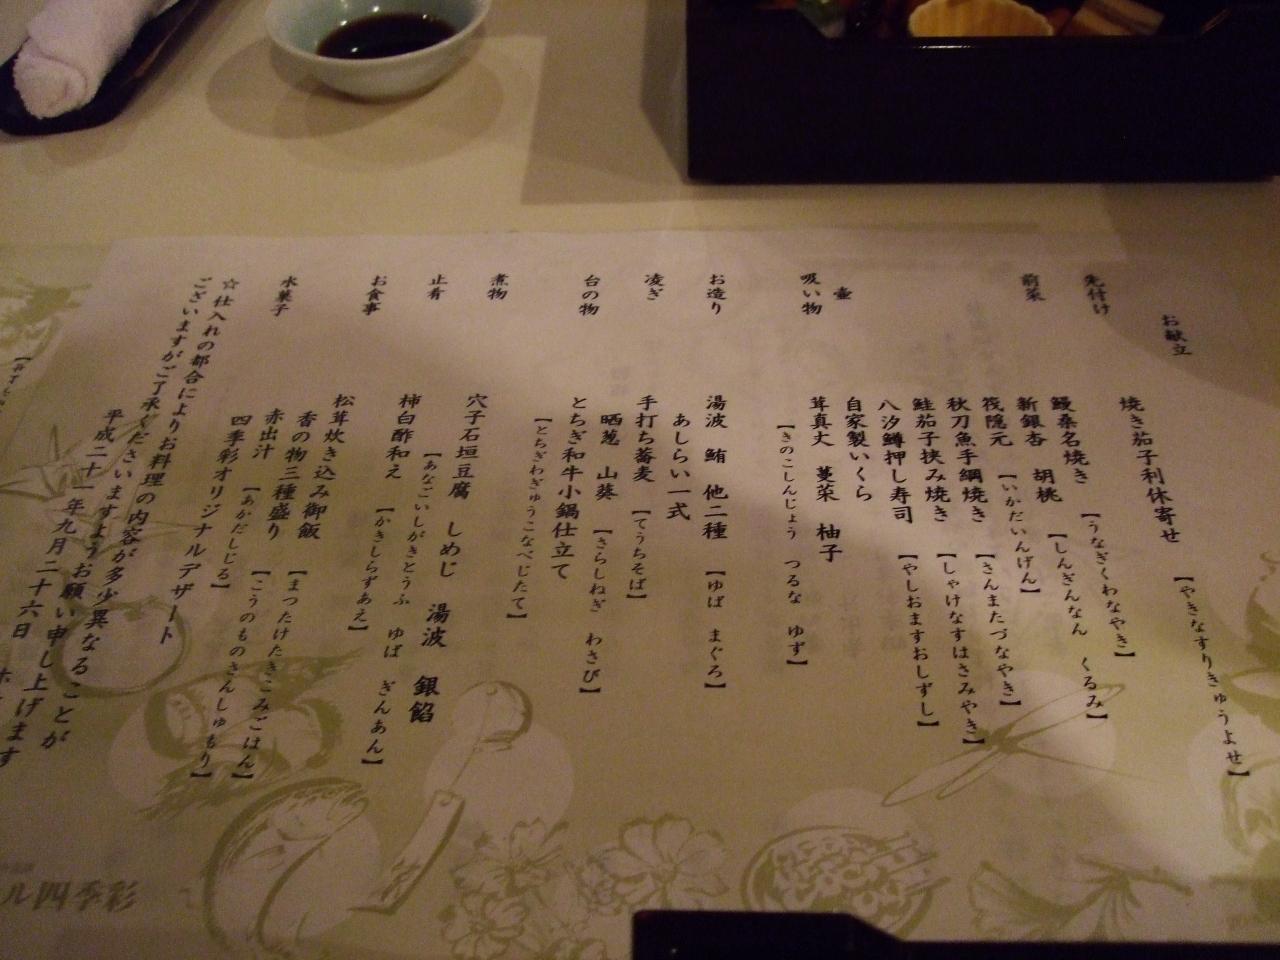 お献立
先付け
焼き茄子利休寄せ 【やきなすりきゅうよせ】
前菜
鰻桑名焼き 【うなぎくわなやき】
新銀杏 胡桃 【しんぎんなん くるみ】
筏隠元 【いかだいんげん】
秋刀魚手綱焼き 【さんまたづなやき】
鮭茄子挟み焼き 【しゃけなすはさみやき】
八汐鱒押し寿司 【やしおますおしずし】
壷 自家製いくら
吸い物 茸真丈 蔓菜 柚子
【きのこしんじょう つるな ゆず】
お造り 湯波 鮪 他二種 【ゆば まぐろ】
あしらい一式
凌ぎ 手打ち蕎麦 【てうちそば】
晒葱 山葵 【さらしねぎ わさび】
台の物 とちぎ和牛小鍋仕立て
【とちぎわぎゅうこなべじたて】
煮物 穴子石垣豆腐 しめじ 湯波 銀餡
【あなごいしがきとうふ ゆば ぎんあん】
止肴 柿白酢和え 【かきしらずあえ】
お食事 松茸炊き込み御飯 【まつたけたきこみごはん】
香の物三種盛り 【こうのものさんしゅもり】
赤出汁 【あかだしじる】
水菓子 四季彩オリジナルデザート
☆仕入れの都合によりお料理の内容が多少異なることが
ございますがご了承くださいますようお願い申し上げます
平成二十一年九月二十六日
ル四季彩